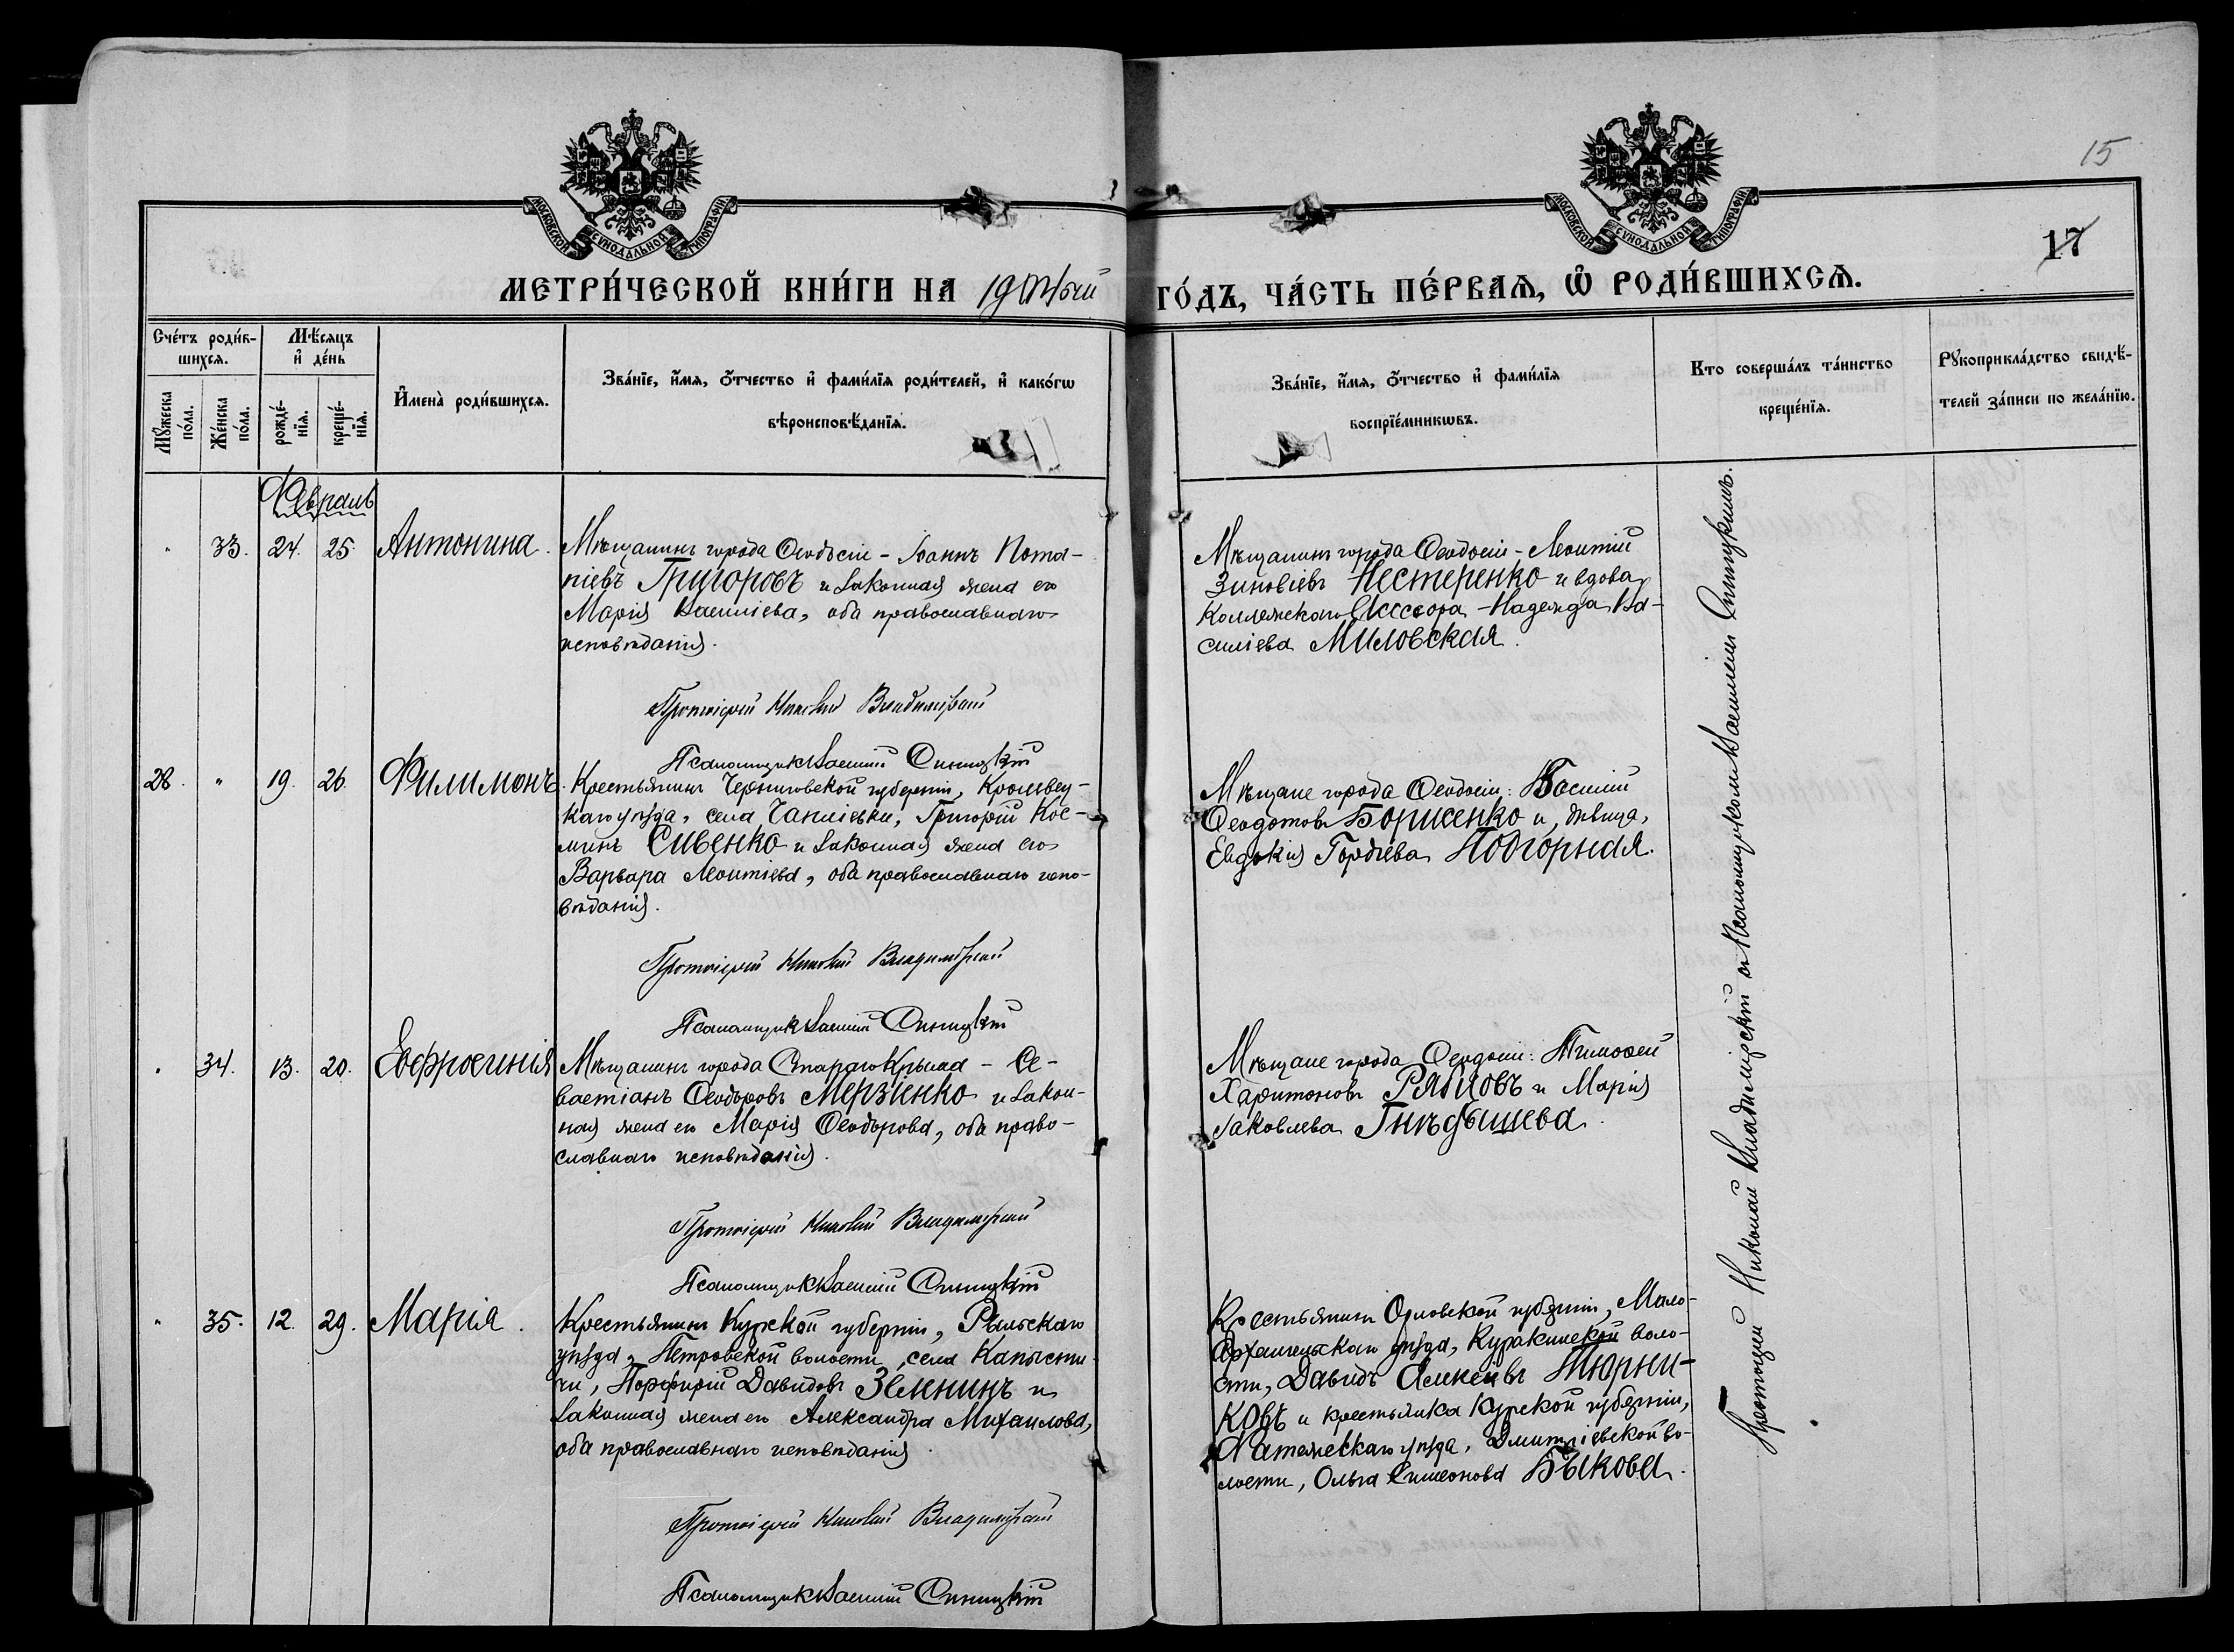 15
17
МОСКОВСКОЙ СУНОДАЛЬНОЙ ТИПОГРАФІИ
МОСКОВСКОЙ СУНОДАЛЬНОЙ ТИПОГРАФІИ
МЕТРИ́ЧЕСКОЙ КНИ́ГИ НА ГО́ДЪ, ЧА́СТЬ ПЕ́РВАѦ, Ѡ҆ РОДИ́ВШИХСѦ.
Сче́тъ роди́в-
шихся.
Мѣ́сяцъ
и҆ де́нь
Мꙋ́жеска по́ла.
Же́нска по́ла.
рожде́-
нїя.
креще́-
нїя.
И҆мена̀ роди́вшихся.
Зва́нїе, и҆́мя, ѻ҆́тчество и҆ фами́лїя роди́телей, и҆ како́гѡ
вѣроисповѣ́данїя.
Зва́нїе, и҆́мя, ѻ҆́тчество и҆ фами́лїя
воспрїе́мникѡвъ.
Кто соверша́лъ та́инство
креще́нїя.
Рꙋкоприкла́дство свидѣ́-
телей за́писи по жела́нїю.
Февраль
33. 24. 25. Антонина.
Мѣщанинъ города Ѳеодосіи - Іоаннъ Пота-
піевъ Григоровъ и законная жена его
Марія Васильева, оба православнаго
исповѣданія.
Протоіерей Николай Владимірскій
Псаломщикъ Василій Синицкій
Мѣщанинъ города Ѳеодосіи - Леонтій
Зиновіевъ Нестеренко и вдова
Коллежскаго Ассесора - Надежда Ва-
силіева Миловская.
28. " 19. 26. Филимонъ.
Крестьянинъ Черниговской губерніи, Кролевец-
каго уѣзда, села Чапліевки, Григорій Кос-
минъ Сивенко и законная жена его
Варвара Леонтіева, оба православнаго испо-
вѣданія.
Протоіерей Николай Владимірскій
Псаломщикъ Василій Синицкій
Мѣщане города Ѳеодосіи: Василій
Ѳеодотовъ Борисенко и, дѣвица,
Евдокія Гордіева Подгорная.
34. 13. 20. Евфросинія
Мѣщанинъ города Стараго Крыма - Се-
вастіанъ Ѳеодоровъ Мерзинко и закон-
ная жена его Марія Ѳеодорова, оба право-
славнаго исповѣданія.
Протоіерей Николай Владимірскій
Псаломщикъ Василій Синицкій
Мѣщане города Ѳеодосіи: Тимоѳей
Харитоновъ Рябцовъ и Марія
Іаковлева Гнѣдышева.
35. 12. 29. Марія.
Крестьянинъ Курской губерніи, Рыльскаго
уѣзда, Петровской волости, села Капысти-
чи, Порфирій Давидовъ Зёкнинъ и
законная жена его Александра Михаилова,
оба православнаго исповѣданія.
Протоіерей Николай Владимірскій
Псаломщикъ Василій Синицкій
Крестьянинъ Орловской губерніи, Мало-
Архангельскаго уѣзда, Куракинской воло-
сти, Давидъ Алексіевъ Тюрни-
ковъ и крестьянка Курской губерніи,
уѣзда, Дмитріевской во-
лости, Ольга Симеонова Быкова.
Протоіерей Николай Владимірскій съ Псаломщикомъ Василіемъ Синицкимъ.